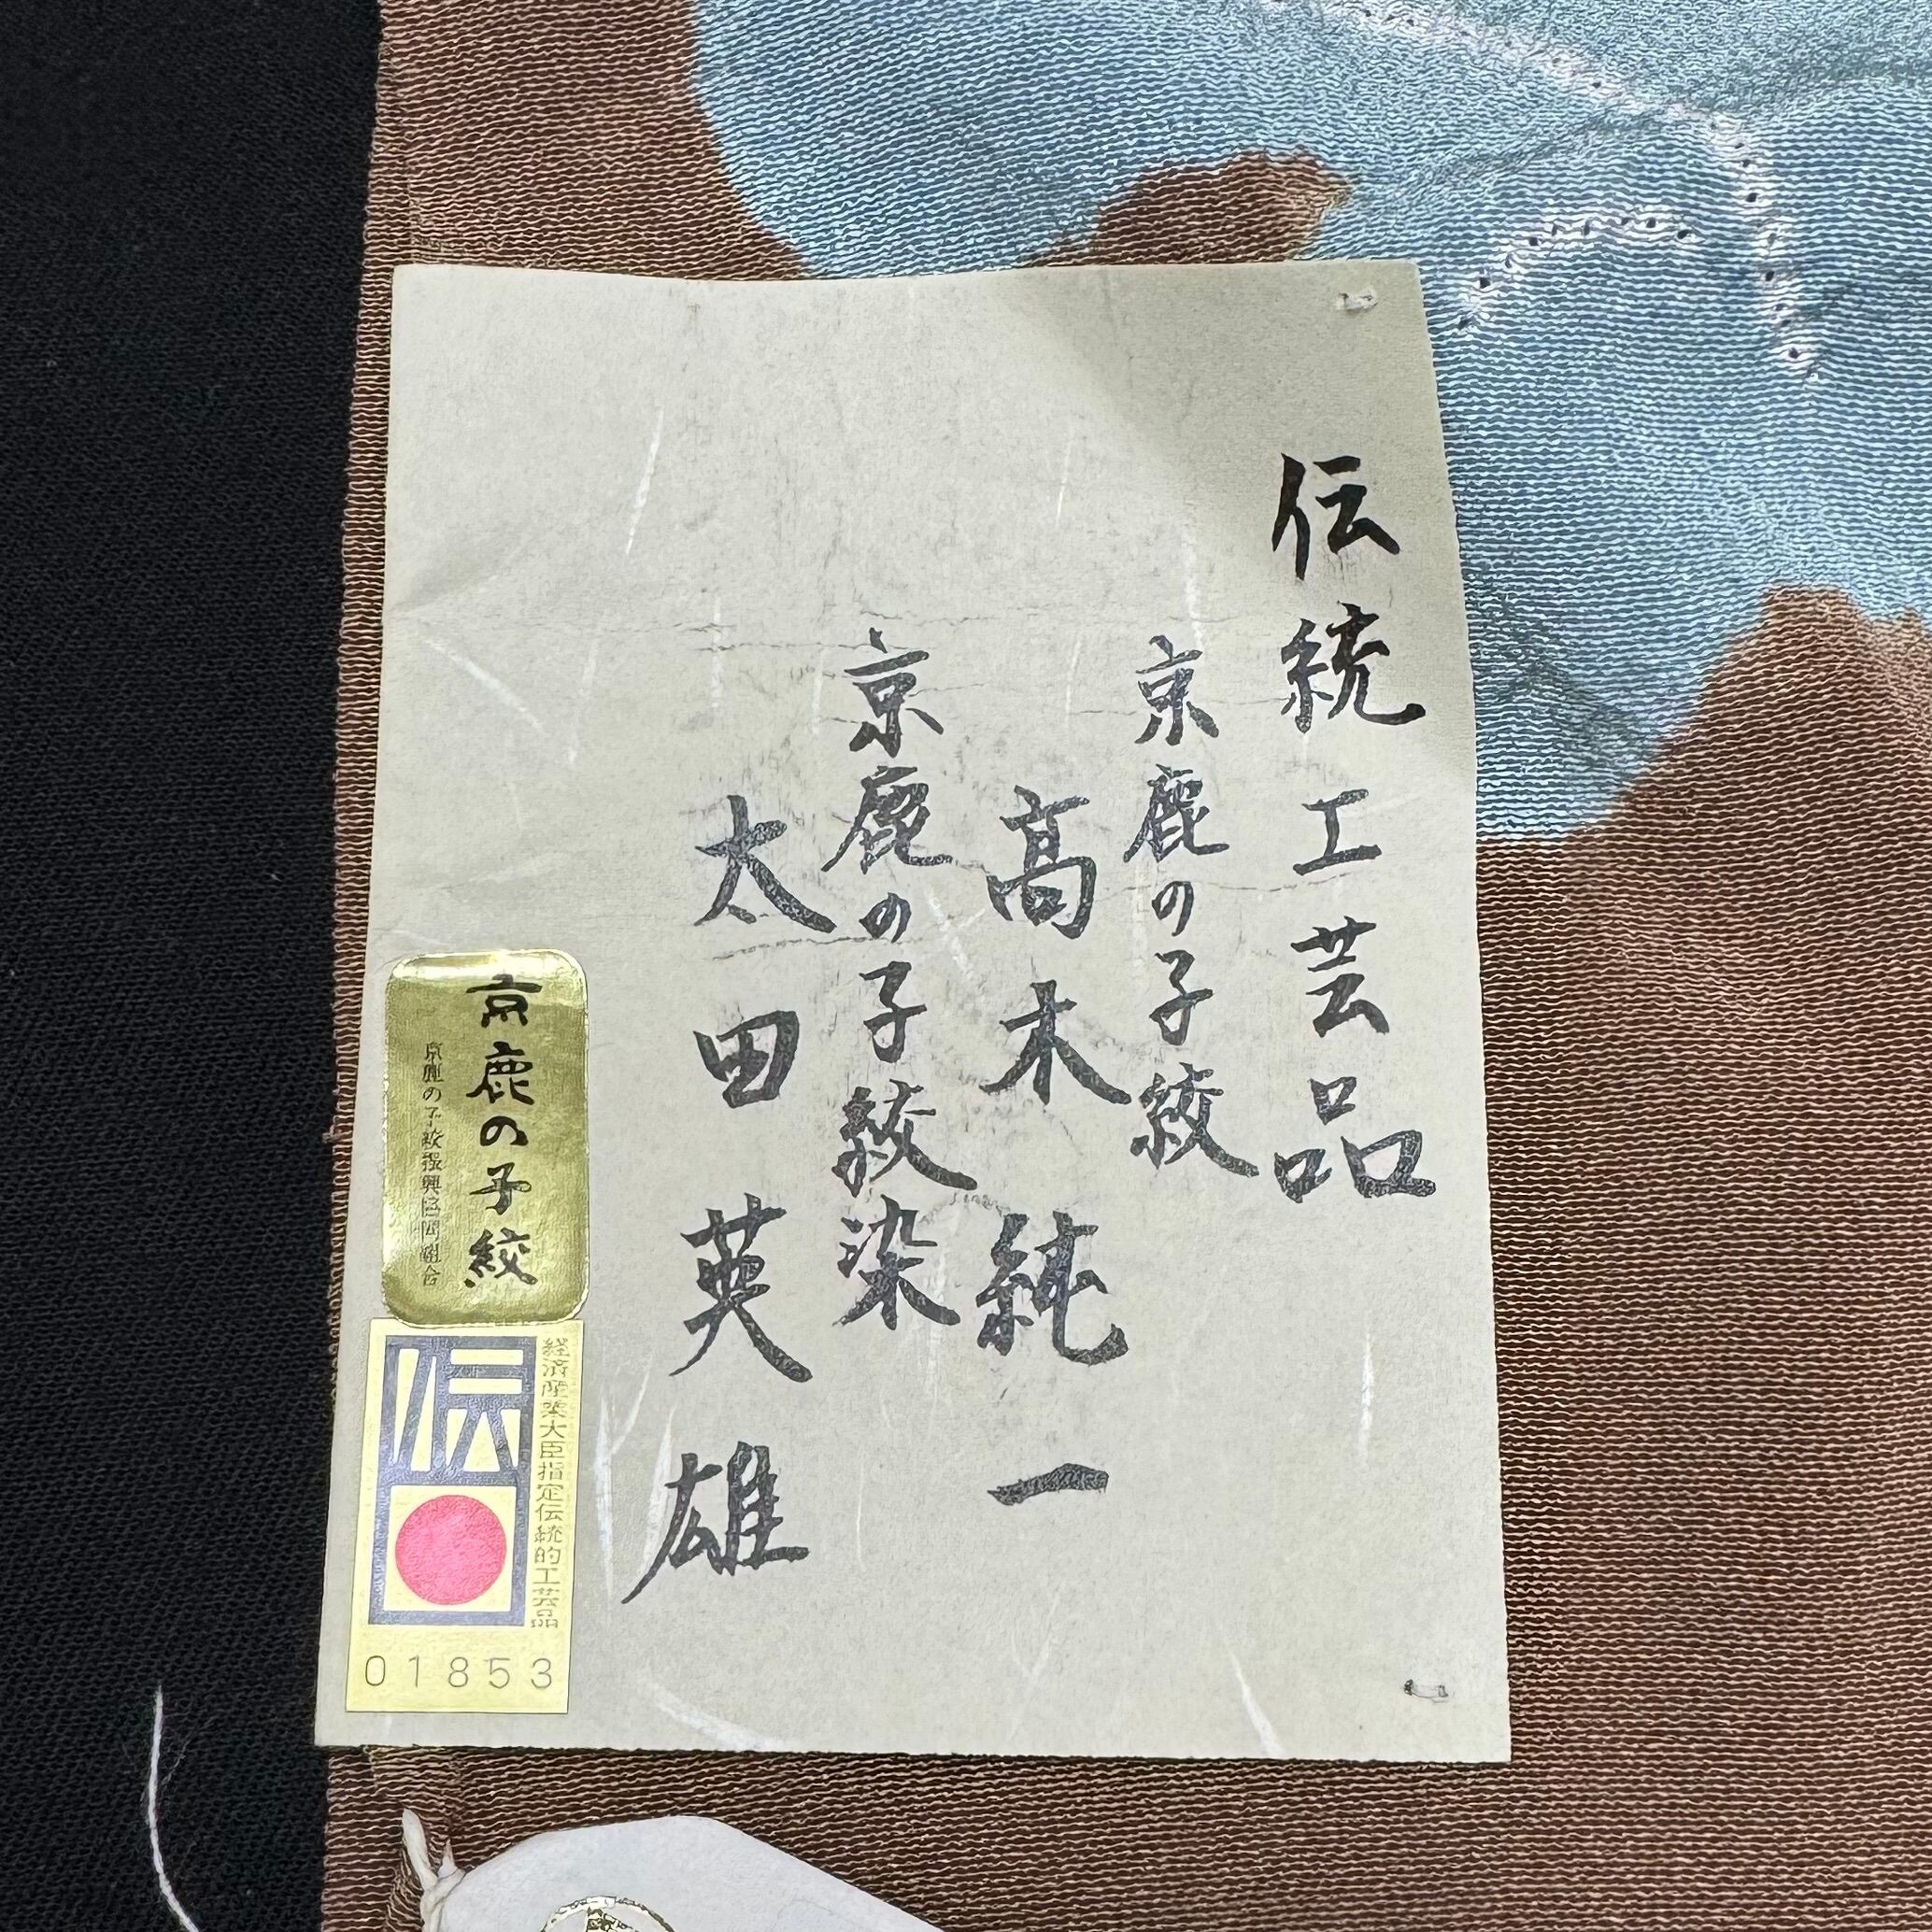 伝統工芸品
京鹿の子絞
高木純一
京鹿の子絞染
太田英雄
京鹿の子絞
京鹿の子絞振興協同組合
経済産業大臣指定伝統的工芸品
伝
01853